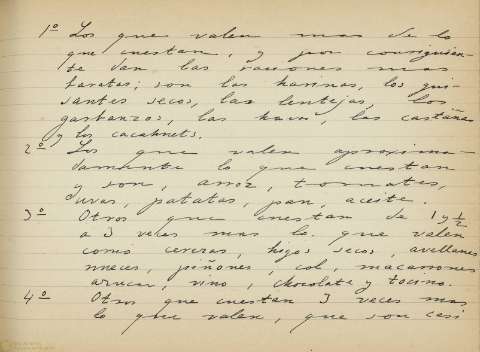 1º Los que valen mas de lo
que cuestan, y por consiguien-
te dan las raciones mas
baratas; son las harinas, los gui-
santes secos, las lentejas, los
garbanzos, las havas, las castañas
y los cacahuets.
2º Los que valen aproxima-
damente lo que cuestan
y son, arroz, tomates,
uvas, patatas, pan, aceite.
3º Otros que cuestan de 1 y ½
a 3 veces mas lo que valen
como cerezas, higos secos, avellanas
nueces, piñones, col, macarrones
azucar, vino, chocolate y tocino.
4º Otros que cuestan 3 veces mas
lo que valen, que son casi